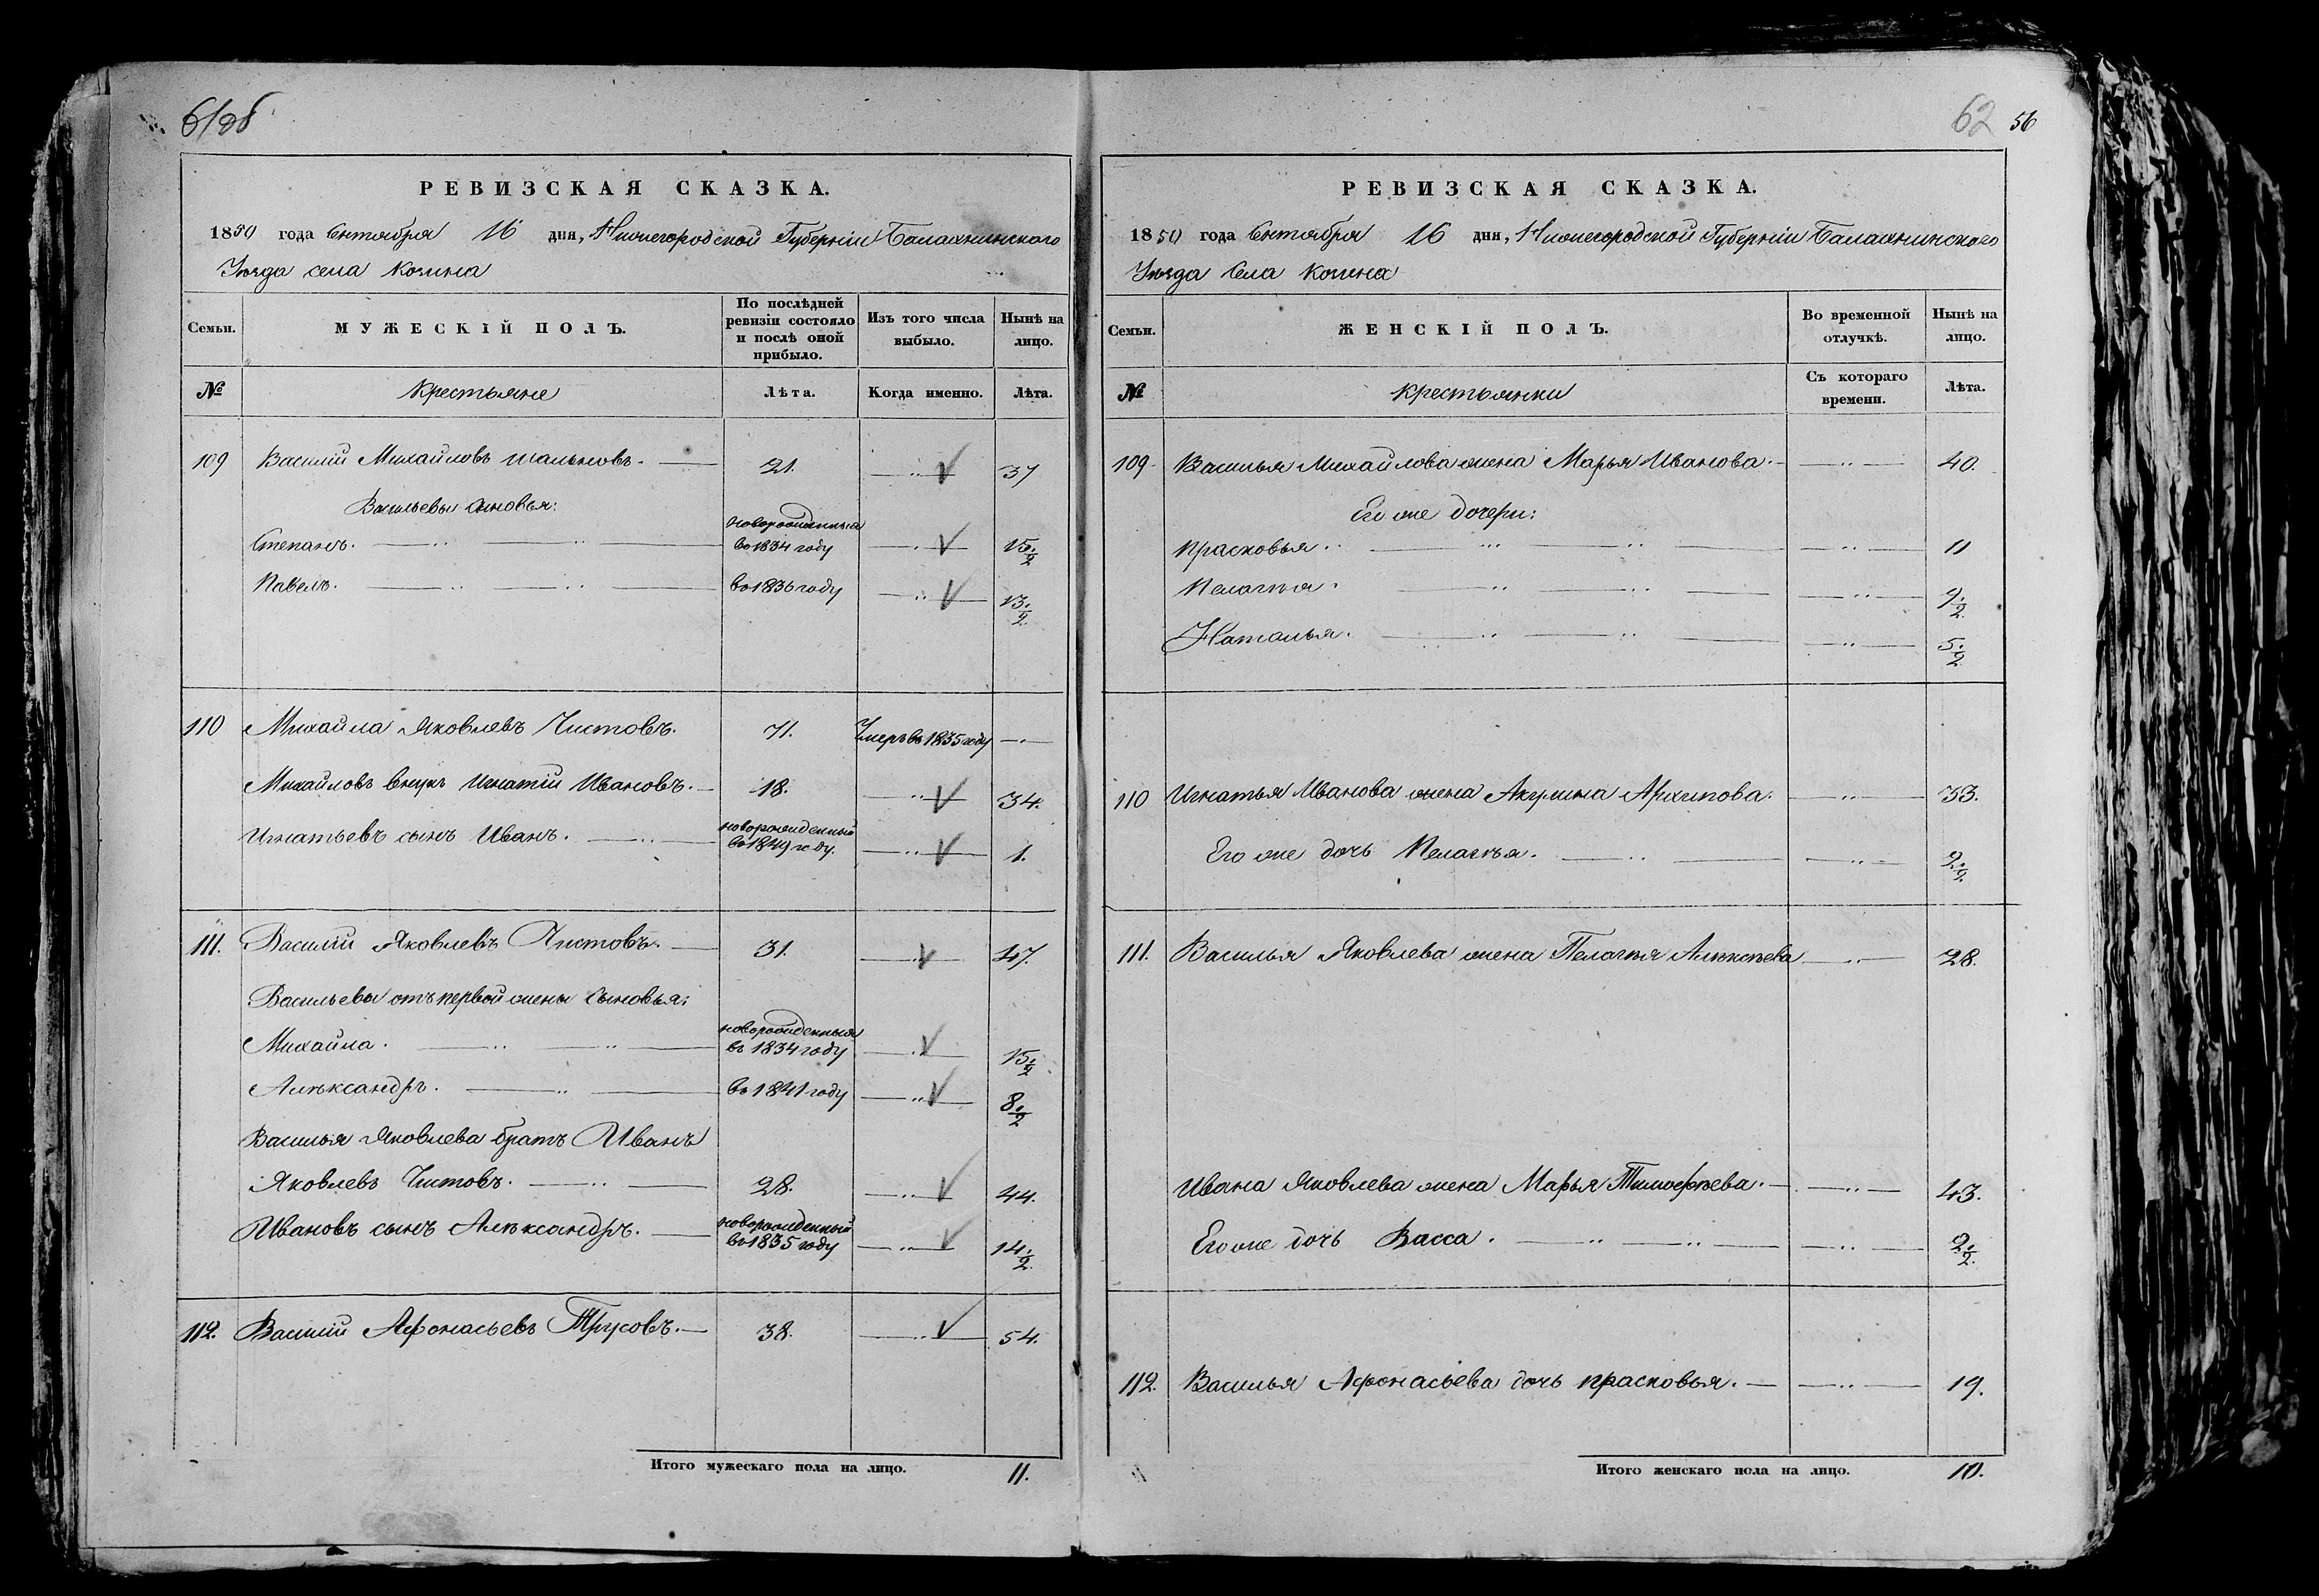 61об
РЕВИЗСКАЯ СКАЗКА.
1850 года Сентября 16 дня, Нижегородской Губерніи Балахнинскаго
Уѣзда села Козина
Семьи.
МУЖЕСКІЙ ПОЛЪ.
По послѣдней
ревизіи состояло
и послѣ оной
прибыло.
Изъ того числа
выбыло.
Нынѣ на
лицо.
№ Крестьяне Лѣта. Когда именно. Лѣта.
109 Василій Михайловъ Шальновъ. 21. 37
Васильевы сыновья:
новорожденныя
Степанъ. во 1834 году 15 1/2
Павелъ. во 1836 году 13 1/2
110 Михайла Яковлевъ Чистовъ. 71. Умеръ въ 1835 году
Михайловъ внукъ Игнатій Ивановъ. 18. 34.
новорожденный
Игнатьевъ сынъ Иванъ. во 1849 году. 1.
111. Василій Яковлевъ Чистовъ. 31. 47.
Васильевы отъ первой жены сыновья:
новорожденныя
Михайла. въ 1834 году 15 1/2
Алѣксандръ. во 1841 году 8 1/2
Василья Яковлева братъ Иванъ
Яковлевъ Чистовъ. 28. 44.
новорожденный
Ивановъ сынъ Алѣксандръ. въ 1835 году 14 1/2
112. Василій Афонасьевъ Трусовъ. 38. 54.
Итого мужескаго пола на лицо. 11.
62 56
РЕВИЗСКАЯ СКАЗКА.
1850 года Сентября 16 дня, Нижегородской Губерніи Балахнинскаго
Уѣзда Села Козина
Семьи.
ЖЕНСКІЙ ПОЛЪ.
Во временной
отлучкѣ.
Нынѣ на
лицо.
№ Крестьянки
Съ котораго
времени.
Лѣта.
109 Василья Михайлова жена Марья Иванова. 40.
Его же дочери:
Прасковья. 11
Пелагѣя. 9 1/2
Наталья. 5 1/2
110 Игнатья Иванова жена Акулина Архипова. 33.
Его же дочь Пелагѣя. 2 1/2
111. Василья Яковлева жена Пелагѣя Алѣксѣева 28.
Ивана Яковлева жена Марья Тимофѣева. 43.
Его же дочь Васса. 2 1/2
112. Василья Афонасьева дочь Прасковья. 19.
Итого женскаго пола на лицо. 10.